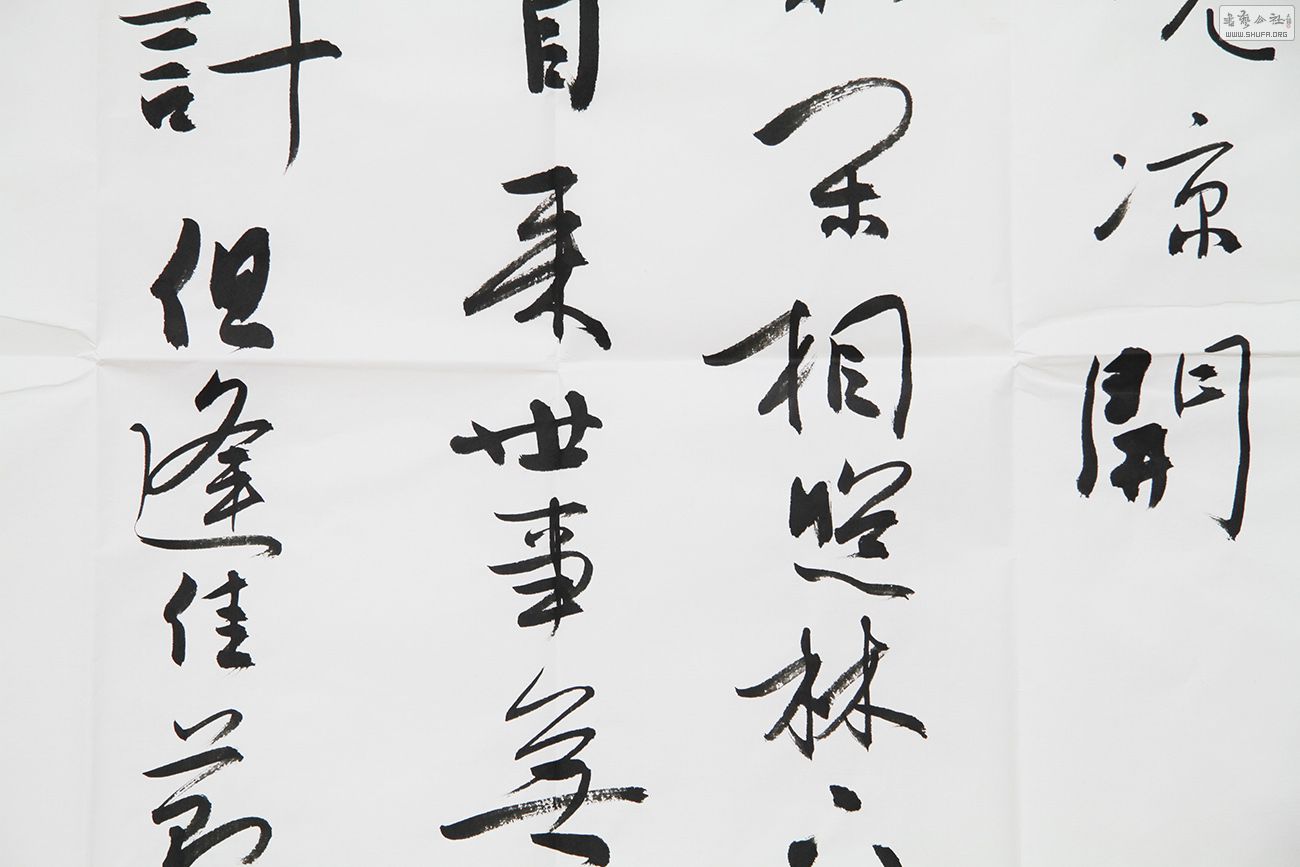 凉開
罙相照林下
自来世事無
計但逢佳節
書藝公社
WWW.SHUFA.ORG